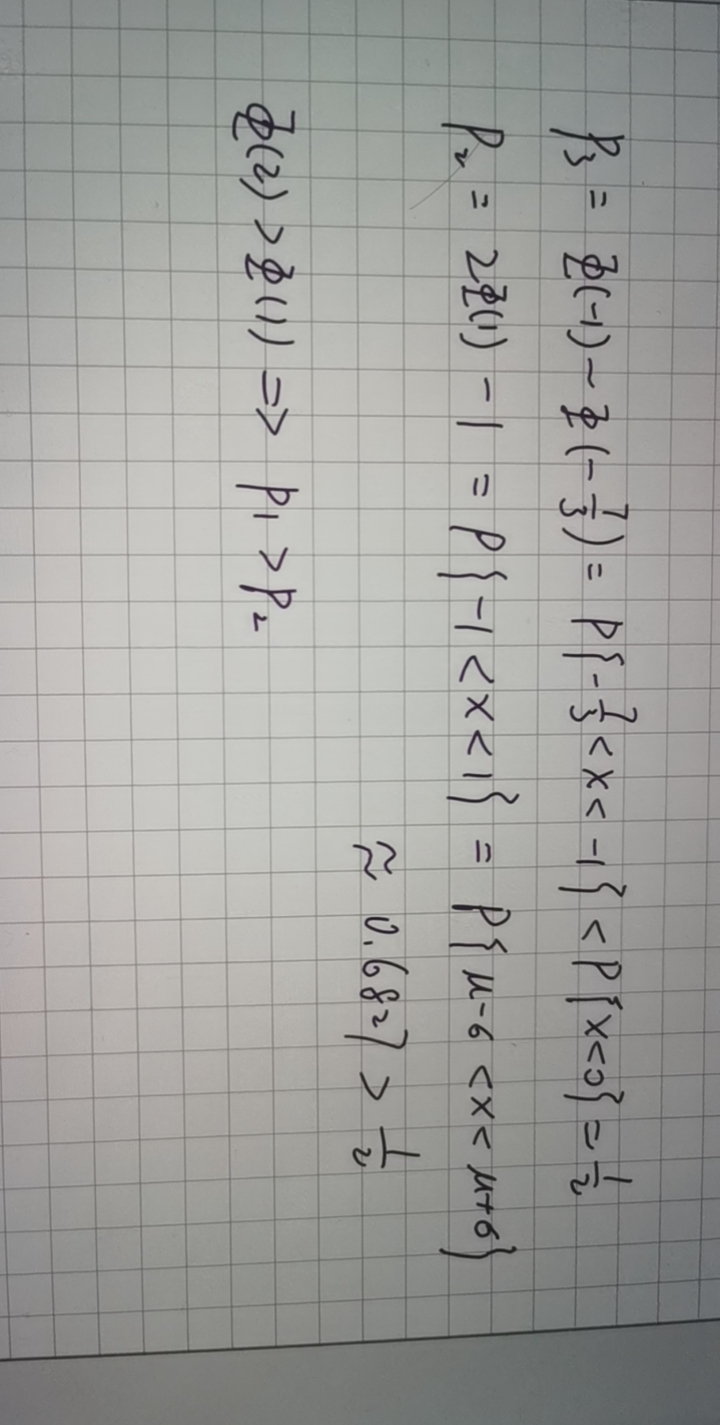 p₃ = Φ(-1) - Φ(-7/3) = P{-7/3 < x < -1} < P{x<0} = 1/2
p₂ = 2Φ(1) - 1 = P{-1 < x < 1} = P{μ-σ < x < μ+σ}
≈ 0.6827 > 1/2
Φ(2) > Φ(1) => p₁ > p₂